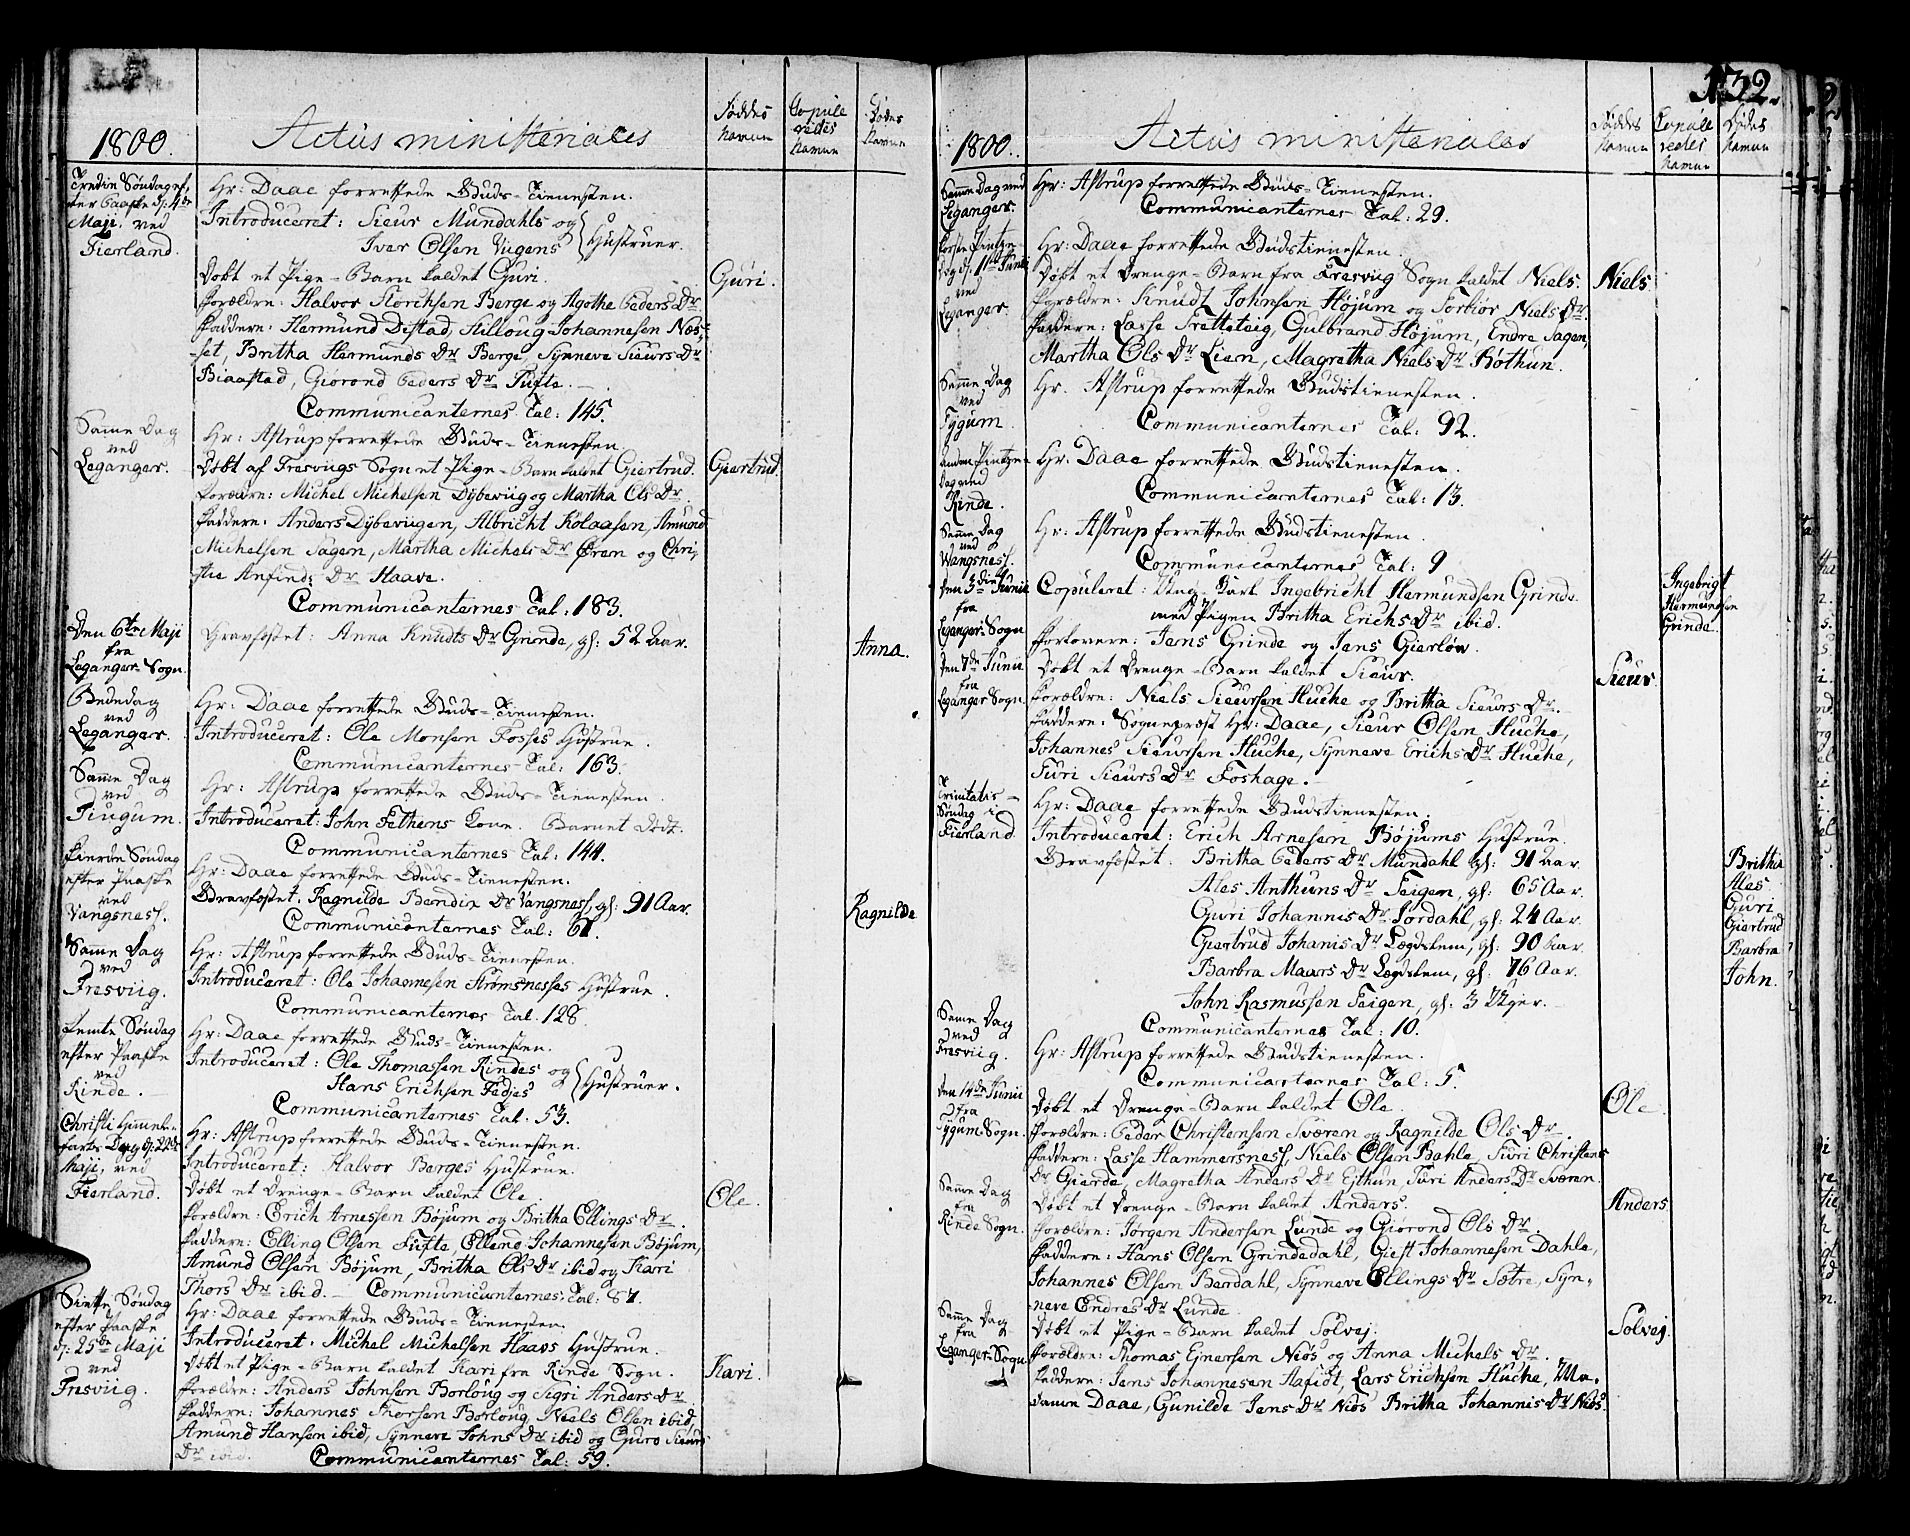 1800.
Actus ministeriales
Føddes Navne
Copuleredes Navne
Dødes Navne
Tredie Søndag ef,
ter Paaske d: 4de
Maji, ved
Fierland.
Hr: Daae forrettede Guds-Tienesten.
Introduceret: Sieur Mundahls og
Iver Olsen Vugens } Hustruer.
Døbt et Pige-Barn kaldet Guri.
Guri.
Forældre: Halvor Storchsen Berge og Agothe Peders Dr
Faddere: Hermund Distad, Hilloug Johannesen Næs-
-set, Britha Hermunds Dr Berge, Synneve Sieurs Dr
Biaastad, Giørond Peders Dr Tufte.
Communicanternes Tal: 145.
Samme Dag
ved
Leganger.
Hr: Astrup forrettede Guds-Tienesten.
Døbt af Fresviigs Sogn et Pige-Barn kaldet Giertrud.
Giertrud.
Forældre: Michel Michelsen Dybeviig og Martha Ols Dr
Faddere: Anders Dybeviigen, Albricht Kolaasen, Amund
Michelsen Sagen, Martha Michels Dr Øren og Chri,
stie Anfinds Dr Haave.
Communicanternes Tal: 183.
Den 6te Maji
fra
Leganger Sogn.
Gravfæstet: Anna Knudts Dr Grinde, gl: 52 Aar.
Anna.
Bededag
ved
Leganger.
Hr: Daae forrettede Guds-Tienesten.
Introduceret: Ole Monsen Fosses Hustrue.
Communicanternes Tal: 163.
Samme Dag
ved
Tiugum.
Hr: Astrup forrettede Guds-Tienesten.
Introduceret: John Fethens Kone. Barnet Dødt.
Communicanternes Tal: 144.
Fierde Søndag
efter Paaske
ved
Vangsness.
Hr: Daae forrettede Guds-Tienesten.
Gravfæstet. Ragnilde Bendix Dr Vangsness, gl: 91 Aar.
Ragnilde
Communicanternes Tal: 61.
Samme Dag
ved
Fresviig.
Hr: Astrup forrettede Guds-Tienesten.
Introduceret: Ole Johannesen Strømsnesses Hustrue.
Communicanternes Tal. 128.
Femte Søndag
efter Paaske
ved
Rinde.
Hr: Daae forrettede Guds-Tienesten.
Introduceret: Ole Thomassen Rindes og
Hans Erichsen Fedjes } Hustruer.
Communicanternes Tal. 53.
Christi Himmel-
farts Dag d: 22de
Maji, ved
Fierland.
Hr: Astrup forrettede Guds-Tienesten.
Introduceret: Halvor Berges Hustrue.
Døbt et Drenge-Barn kaldet Ole.
Ole.
Forældre: Erich Arnessen Bøjum og Britha Ellings Dr.
Faddere: Elling Olsen Tufte, Elleng Johannesen Bøjum,
Amund Olsen Bøjum, Britha Ols Dr ibid og Kari
Thors Dr ibid. - Communicanternes Tal: 87.
Siette Søndag
efter Paaske
d: 25de Maji
ved
Fresviig.
Hr: Daae forrettede Guds-Tienesten.
Introduceret. Michel Michelsen Haaves Hustrue.
Døbt et Pige-Barn kaldet Kari fra Rinde Sogn.
Kari.
Forældre: Anders Johnsen Borloug og Sigri Anders Dr
Faddere: Johannes Thorsen Borloug, Niels Olsen ibid,
Amund Hansen ibid, Synneve Johns Dr ibid og Guro Sieurs
Dr ibid.
Communicanternes Tal: 59.
132.
1800.
Actus ministeriales
Føddes Navne
Copuleredes Navne
Dødes Navne
Samme Dag ved
Leganger.
Hr: Astrup forrettede Guds-Tienesten.
Communicanternes Tal: 29.
Første Pintze-
Dag d: 1ste Junii
ved
Leganger.
Hr: Daae forrettede Gudstienesten.
Døbt et Drenge-Barn fra Fresviig Sogn kaldet Niels.
Niels.
Forældre: Knudt Johnsen Højum og Torbiør Niels Dr.
Faddere: Lasse Tretteteig, Gulbrand Højum, Endre Sagen,
Martha Ols Dr Lien, Magretha Niels Dr Bøthun.
Samme Dag
ved
Tygum.
Hr. Astrup forrettede Gudstienesten.
Communicanternes Tal: 92.
Anden Pintze-
Dag ved
Rinde.
Hr: Daae forrettede Gudstienesten.
Communicanternes Tal: 13.
Samme Dag
ved
Vangsness.
Hr: Astrup forrettede Gudstienesten.
Communicanternes Tal: 9
Den 3die Junii
fra
Leganger Sogn
Copuleret: Ung-Karl Ingebricht Hermundsen Grinde
med Pigen Britha Erichs Dr ibid.
Ingebrigt
Hermundsen
Grinde.
Forlovere: Jens Grinde og Jens Gierløw.
Den 7de Junii
fra
Leganger Sogn.
Døbt et Drenge-Barn kaldet Sieur.
Sieur.
Forældre: Niels Sieursen Huche og Britha Sieurs Dr.
Faddere: Sognepræst Hr: Daae, Sieur Olsen Huche,
Johannes Sieursen Huche, Synneve Erichs Dr Huche,
Turi Sieurs Dr Foshage.
Trinitatis-
Søndag i
Fierland.
Hr: Daae forrettede Gudstienesten.
Introduceret: Erich Arnesen Bøjums Hustrue.
Gravfæstet. Britha Peders Dr Mundahl gl: 91 Aar.
Britha
Ales Anthuns Dr Teigen, gl: 65 Aar.
Ales
Guri Johannis Dr Jordahl, gl: 24 Aar.
Guri
Giertrud Johanis Dr Lægdslem, gl: 90 Aar.
Giertrud
Barbra Maars Dr Lægdslem, gl: 76 Aar.
Barbra
John Rasmussen Teigen, gl: 3 Uger.
John.
Communicanternes Tal: 10.
Samme Dag
ved
Fresviig.
Hr: Astrup forrettede Gudstienesten.
Communicanternes Tal: 5.
Den 14de Junii
fra
Tygum Sogn.
Døbt et Drenge-Barn kaldet Ole.
Ole.
Forældre: Peder Christensen Sværen og Ragnilde Ols Dr.
Faddere: Lasse Hammersness, Niels Olsen Bahle, Turi Christens
Dr Gierde, Magretha Anders Dr Ejthun, Turi Anders Dr Sværen.
Samme Dag
fra
Rinde Sogn.
Døbt et Drenge-Barn kaldet Anders.
Anders.
Forældre: Jørgen Andersen Lunde og Giørond Ols Dr.
Faddere: Hans Olsen Grindedahl, Giest Johannesen Dahle,
Johannes Olsen Berdahl, Synneve Ellings Dr Sætre, Syn-
neve Endres Dr Lunde.
Samme Dag
fra
Leganger Sogn
Døbt et Pige-Barn kaldet Solvej.
Solvej.
Forældre: Thomas Ejnersen Niøs og Anna Michels Dr.
Faddere: Jens Johannesen Hafidt, Lars Erichsen Huche, Ma-
damme Daae, Gunilde Jens Dr Niøs Britha Johannis Dr Niøs.